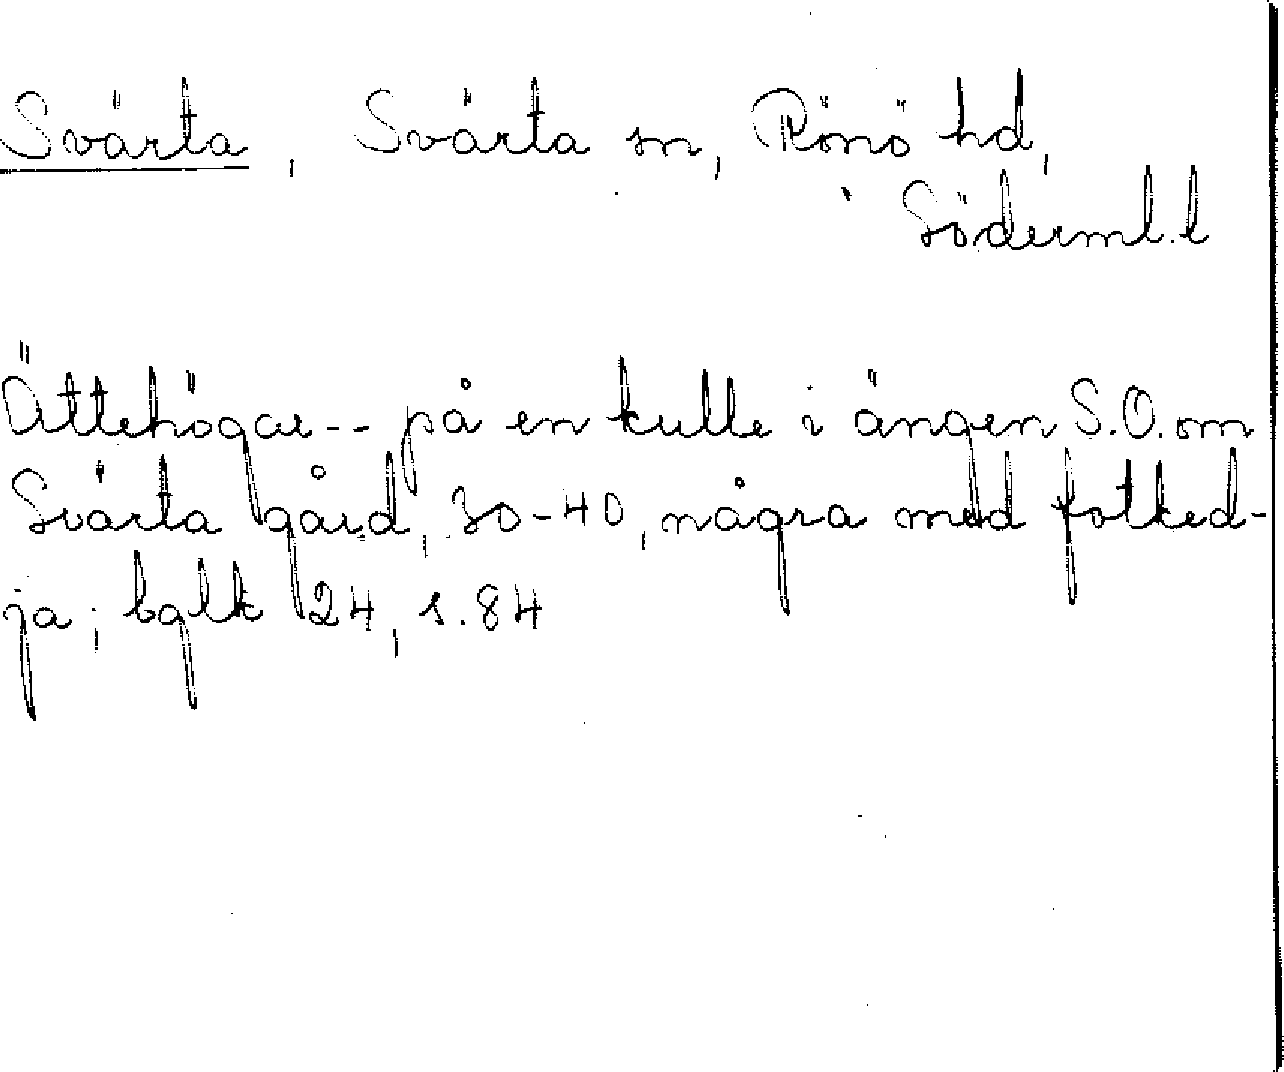 Svärta, Svärta sn, Rönö hd,
Söderml.l
Ättehögar-- på en kulle i ängen S.O. om
Svärta gård, 30-40, några med fotked-
ja; bglk 24, s.84